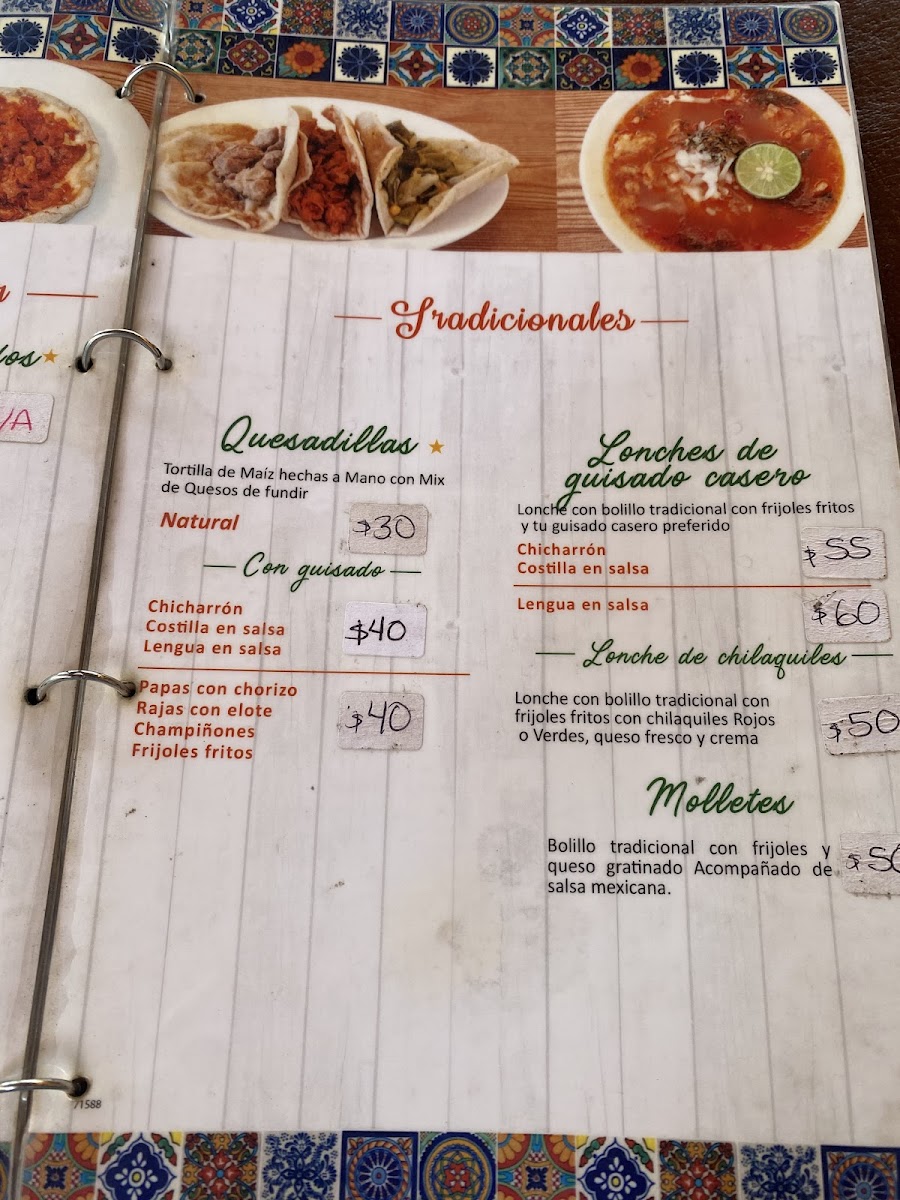 Tradicionales
Quesadillas
Tortilla de Maíz hechas a Mano con Mix
de Quesos de fundir
Natural
$30
Con guisado
Chicharrón
Costilla en salsa
Lengua en salsa
$40
Papas con chorizo
Rajas con elote
Champiñones
Frijoles fritos
$40
Lonches de
guisado casero
Lonche con bolillo tradicional con frijoles fritos
y tu guisado casero preferido
Chicharrón
Costilla en salsa
$55
Lengua en salsa
$60
Lonche de chilaquiles
Lonche con bolillo tradicional con
frijoles fritos con chilaquiles Rojos
o Verdes, queso fresco y crema
$50
Molletes
Bolillo tradicional con frijoles y
queso gratinado Acompañado de
salsa mexicana.
$50
71588